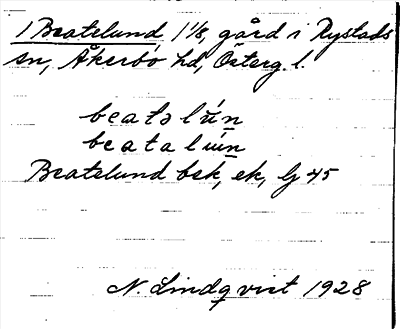 1 Beatelund 1 1/8, gård i Rystads
sn, Åkerbo hd, Österg. l.
beatəlún
beatalún
Beatelund bsk, ek, Gj 45
N. Lindqvist 1928